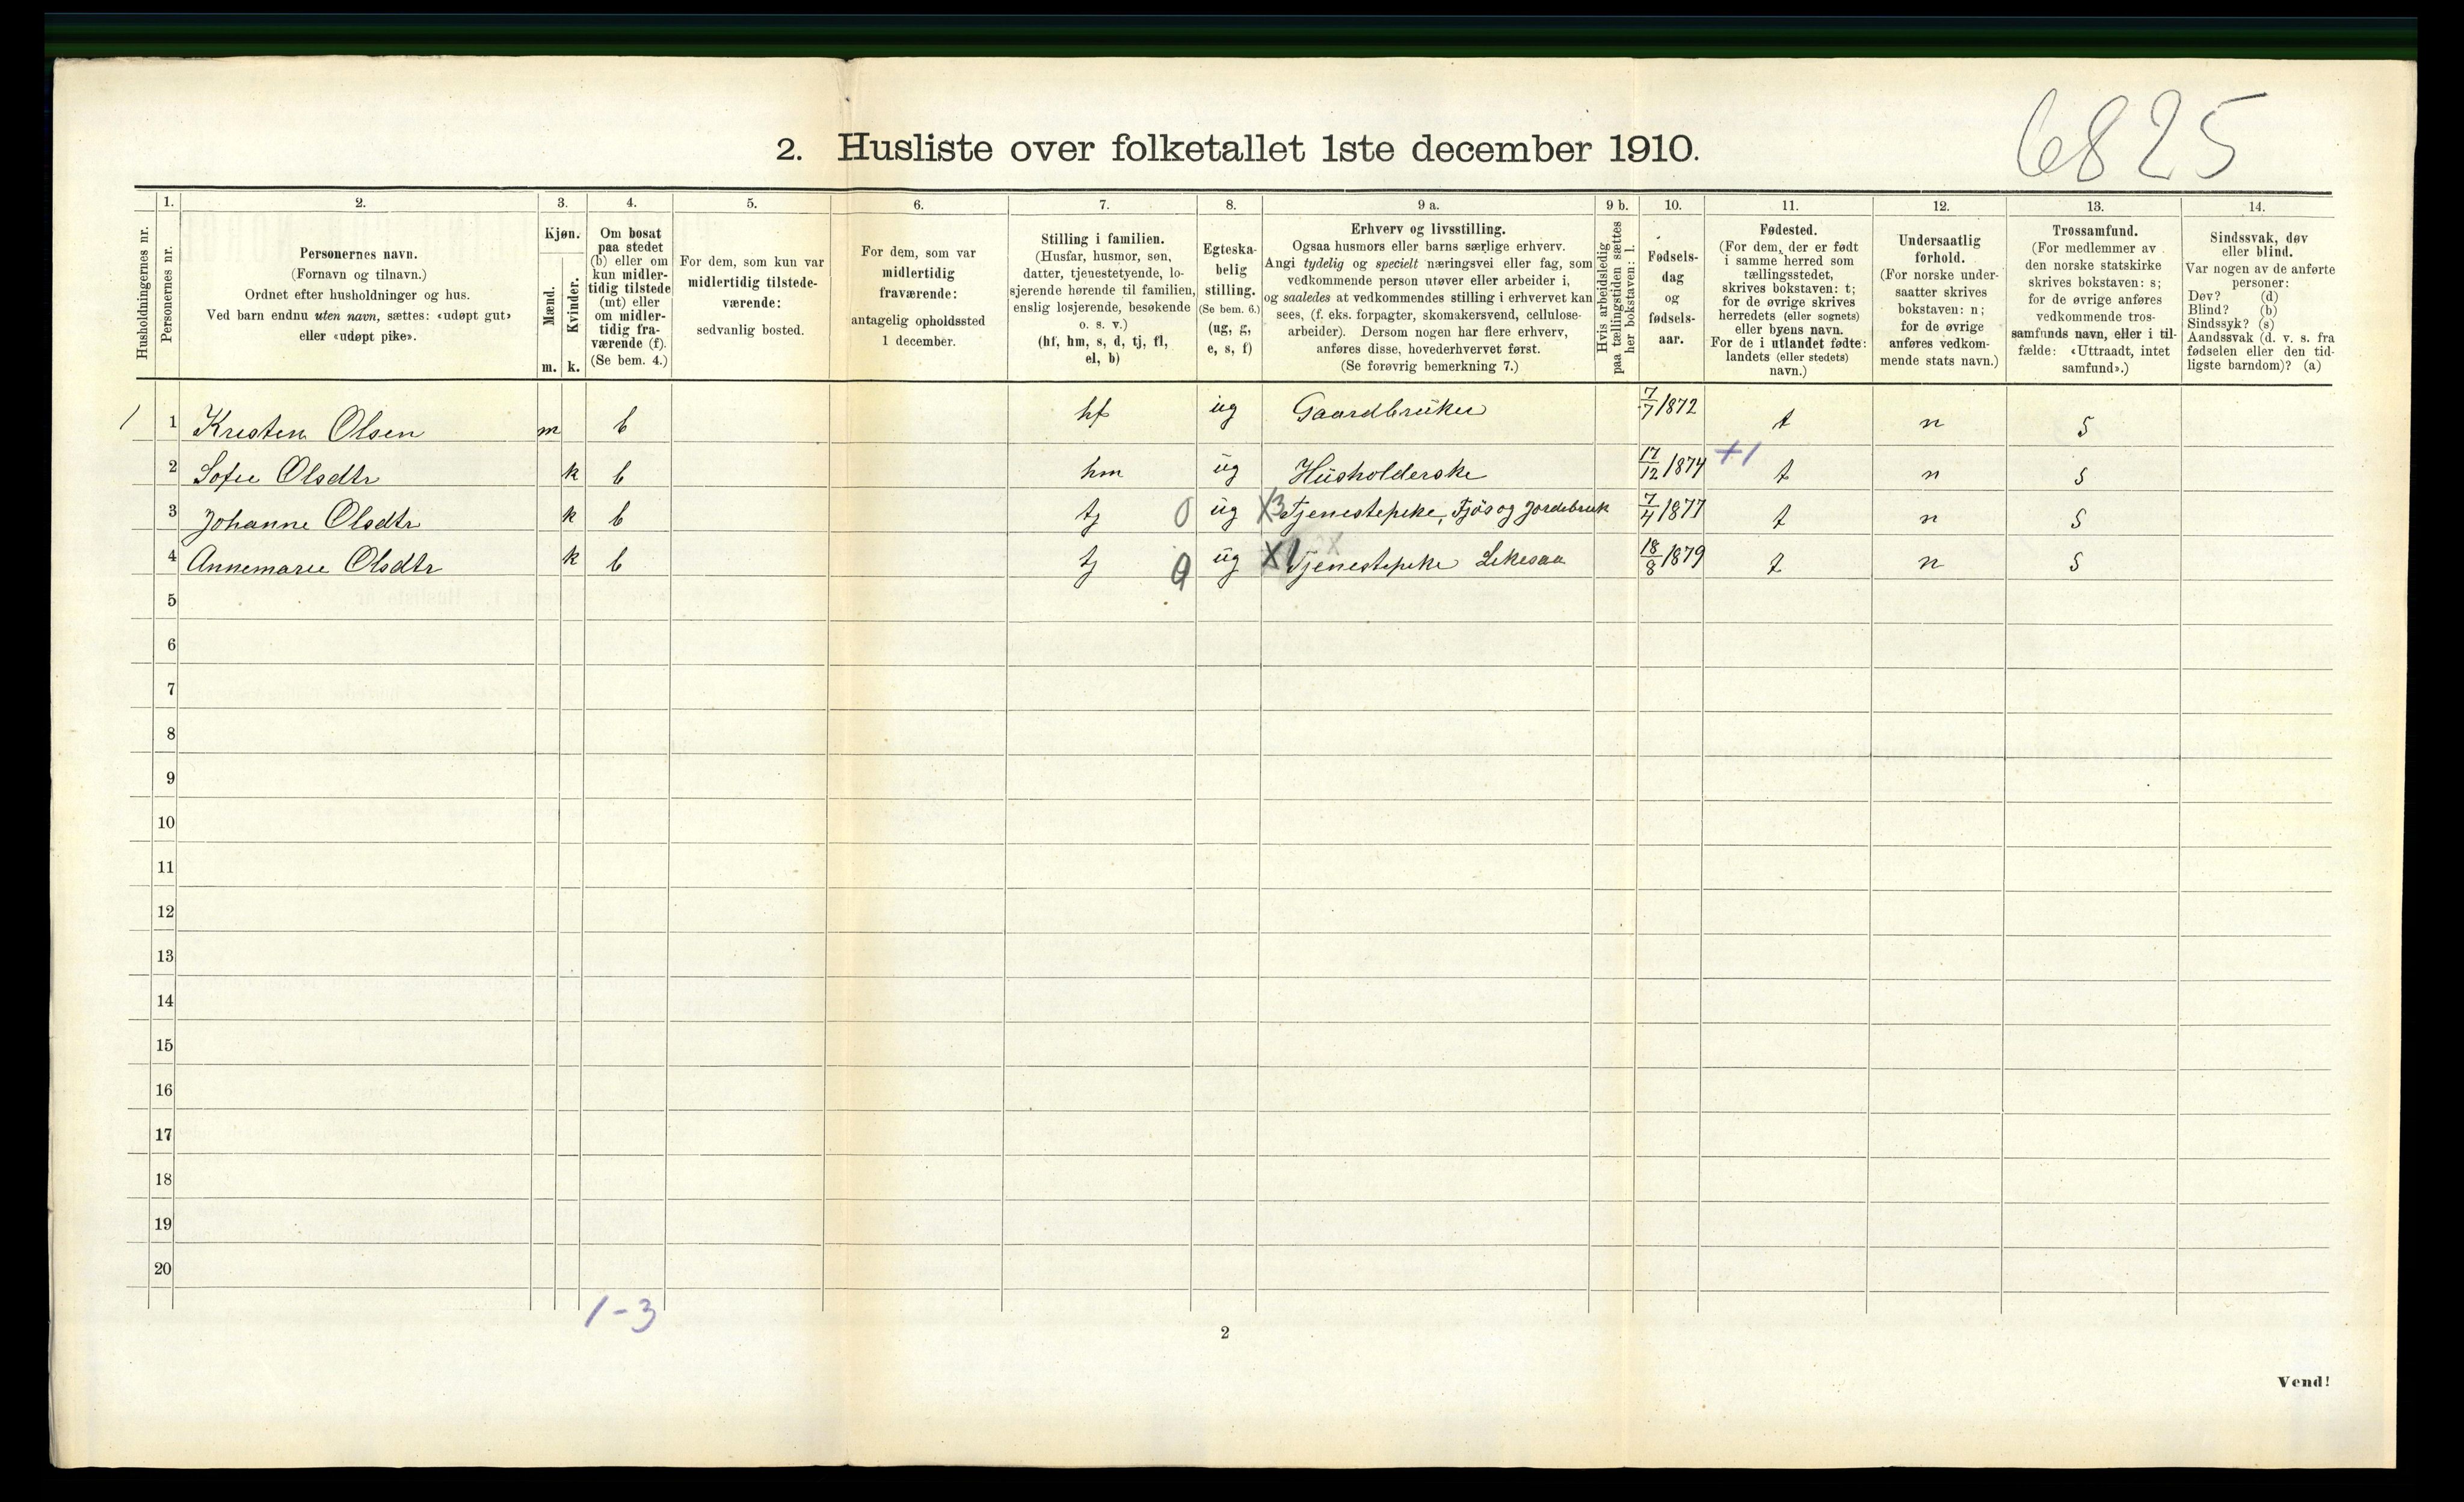 6825
2. Husliste over folketallet 1ste december 1910.
Husholdningernes nr.
1.
Personernes nr.
2.
Personernes navn.
(Fornavn og tilnavn.)
Ordnet efter husholdninger og hus.
Ved barn endnu uten navn, sættes: «udøpt gut»
eller «udøpt pike».
3.
Kjøn.
Mænd.
Kvinder.
m. k.
4.
Om bosat
paa stedet
(b) eller om
kun midler-
tidig tilstede
(mt) eller
om midler-
tidig fra-
værende (f).
(Se bem. 4.)
5.
For dem, som kun var
midlertidig tilstede-
værende:
sedvanlig bosted.
6.
For dem, som var
midlertidig
fraværende:
antagelig opholdssted
1 december.
7.
Stilling i familien.
(Husfar, husmor, søn,
datter, tjenestetyende, lo-
sjerende hørende til familien,
enslig losjerende, besøkende
o. s. v.)
(hf, hm, s, d, tj, fl,
el, b)
8.
Egteska-
belig
stilling.
(Se bem. 6.)
(ug, g,
e, s, f)
9 a.
Erhverv og livsstilling.
Ogsaa husmors eller barns særlige erhverv.
Angi tydelig og specielt næringsvei eller fag, som
vedkommende person utøver eller arbeider i,
og saaledes at vedkommendes stilling i erhvervet kan
sees, (f. eks. forpagter, skomakersvend, cellulose-
arbeider). Dersom nogen har flere erhverv,
anføres disse, hovederhvervet først.
(Se forøvrig bemerkning 7.)
9 b.
Hvis arbeidsledig
paa tællingstiden sættes
her bokstaven: l.
10.
Fødsels-
dag
og
fødsels-
aar.
11.
Fødested.
(For dem, der er født
i samme herred som
tællingsstedet,
skrives bokstaven: t;
for de øvrige skrives
herredets (eller sognets)
eller byens navn.
For de i utlandet fødte:
landets (eller stedets)
navn.)
12.
Undersaatlig
forhold.
(For norske under-
saatter skrives
bokstaven: n;
for de øvrige
anføres vedkom-
mende stats navn.)
13.
Trossamfund.
(For medlemmer av
den norske statskirke
skrives bokstaven: s;
for de øvrige anføres
vedkommende tros-
samfunds navn, eller i til-
fælde: «Uttraadt, intet
samfund».)
14.
Sindssvak, døv
eller blind.
Var nogen av de anførte
personer:
Døv? (d)
Blind? (b)
Sindssyk? (s)
Aandssvak (d. v. s. fra
fødselen eller den tid-
ligste barndom)? (a)
1 1 Kristen Olsen m b hf ug Gaardbruker 7/7 1872 t n s
2 Sofie Olsdtr k b hm ug Husholderske 17/12 1874 +1 t n s
3 Johanne Olsdtr k b tj 0 ug X3 Tjenestepike, Fjös og Jordebruk 7/4 1877 t n s
4 Annemarie Olsdtr k b tj 0 ug X1 Tjenestepike 18/8 1879 t n s
5
6
7
8
9
10
11
12
13
14
15
16
17
18
19
20
1-3
2
Vend!